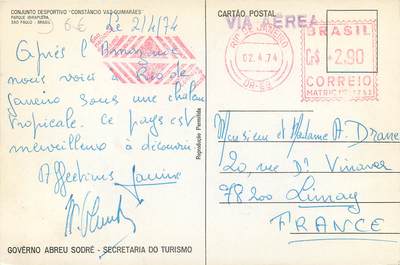 CONJUNTO DESPORTIVO "CONSTÂNCIO VAZ GUIMARÃES"
PARQUE IBIRAPUERA
SÃO PAULO - BRASIL
6€
Le 2/4/74
Après l'
nous voici à Rio de
Janeiro sous une chaleur
Tropicale. Ce pays est
merveilleux à découvrir.
Affections Janine
GOVÊRNO ABREU SODRÉ - SECRETARIA DO TURISMO
Reprodução Permitida
CARTÃO POSTAL
VIA AEREA
RIO DE JANEIRO
02.4.74
BRASIL
Cr$ 2,90
CORREIO
Monsieur et Madame A. Drane
20, rue Dr Vinaver
78200 Limay
FRANCE